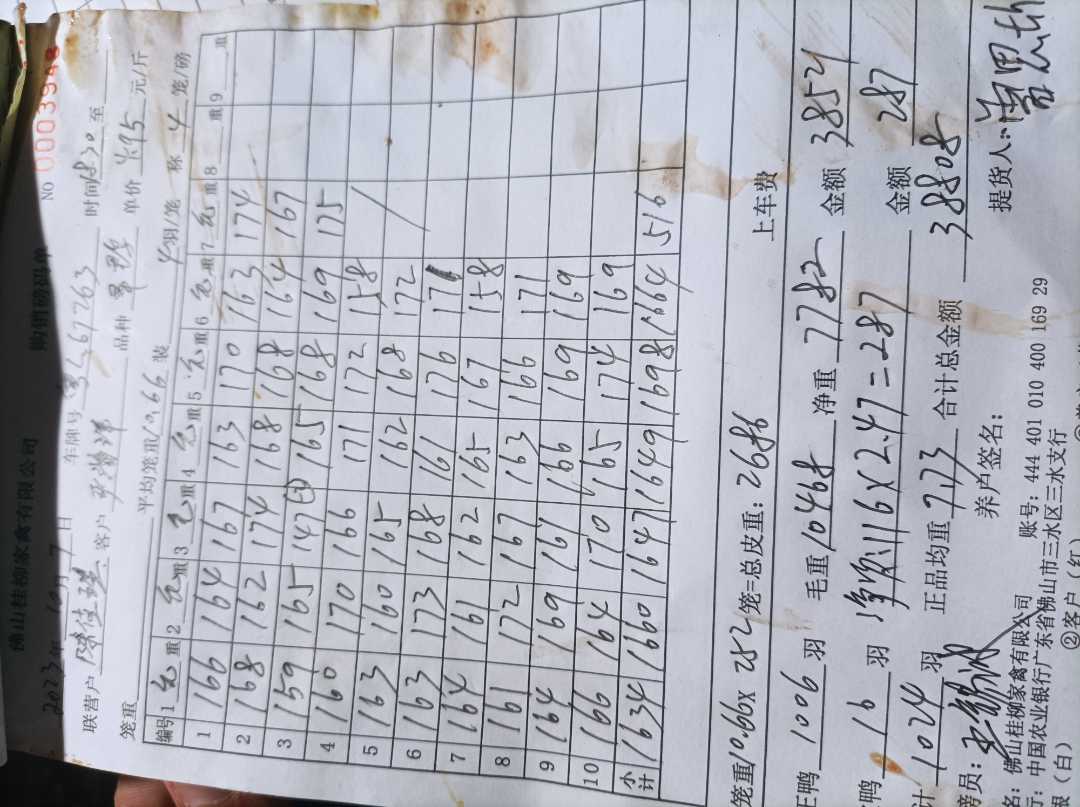 佛山桂柳家禽有限公司 购销磅码单 NO 0003948
2023年10月7日 车牌号 67263 时间 18:30 至
联营户 客户 品种 单价 4.95 元/斤
笼重 平均笼重 10.66 装 4 羽/笼 称 4 笼/磅
编号 1 毛重 2 毛重 3 毛重 4 毛重 5 毛重 6 毛重 7 毛重 8 重 9 重
1 166 164 167 163 170 163 174
2 168 162 174 168 168 164 167
3 159 165 147 165 168 169 175
4 160 170 166 171 172 158
5 163 160 165 162 168 172
6 163 173 168 161 176
7 164 161 162 165 167 158
8 161 172 167 163 166 171
9 164 169 161 166 169 169
10 166 164 170 165 174 169
小计 1634 1660 1647 1649 1698 1664 516
笼重 10.66 x 252 笼=总皮重: 2686 上车费
正鸭 1006 羽 毛重 10468 净重 7782 金额 38521
鸭 16 羽 116 x 2.47 = 287 金额 287
计 1024 羽 正品均重 7.73 合计总金额 38808
磅员: 养户签名: 提货人:
名: 佛山桂柳家禽有限公司 账号: 444 401 010 400 169 29
行: 中国农业银行广东省佛山市三水区三水支行
(白) ②客户(红)